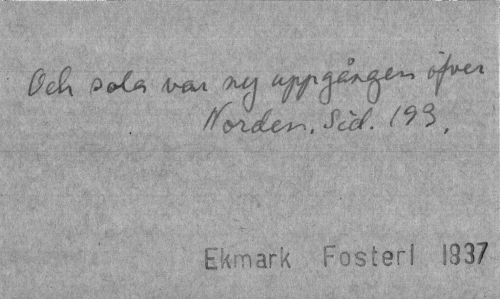 Och sola var ny uppgången öfver
Norden. Sid. 193.
Ekmark Fosterl 1837